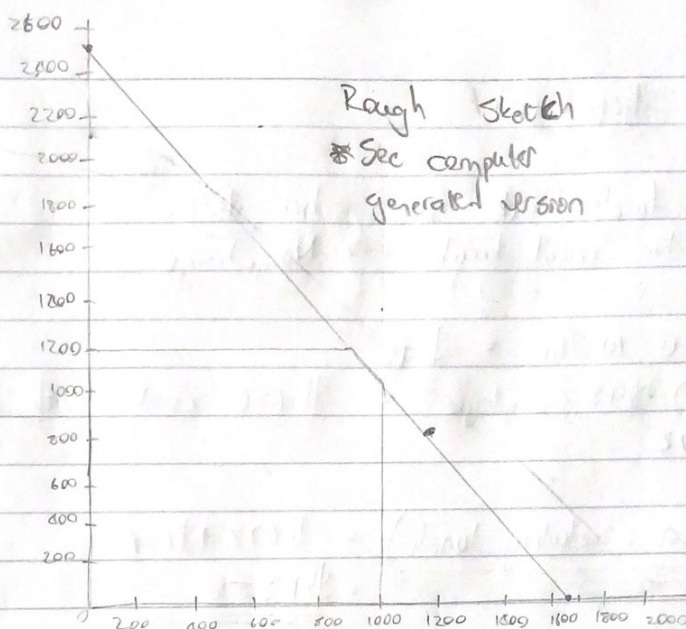 2600
2400
2200
2000
1800
1600
1200
1000
800
600
400
200
Rough Sketch
* See computer
generated version
0 200 400 600 800 1000 1200 1400 1600 1800 2000